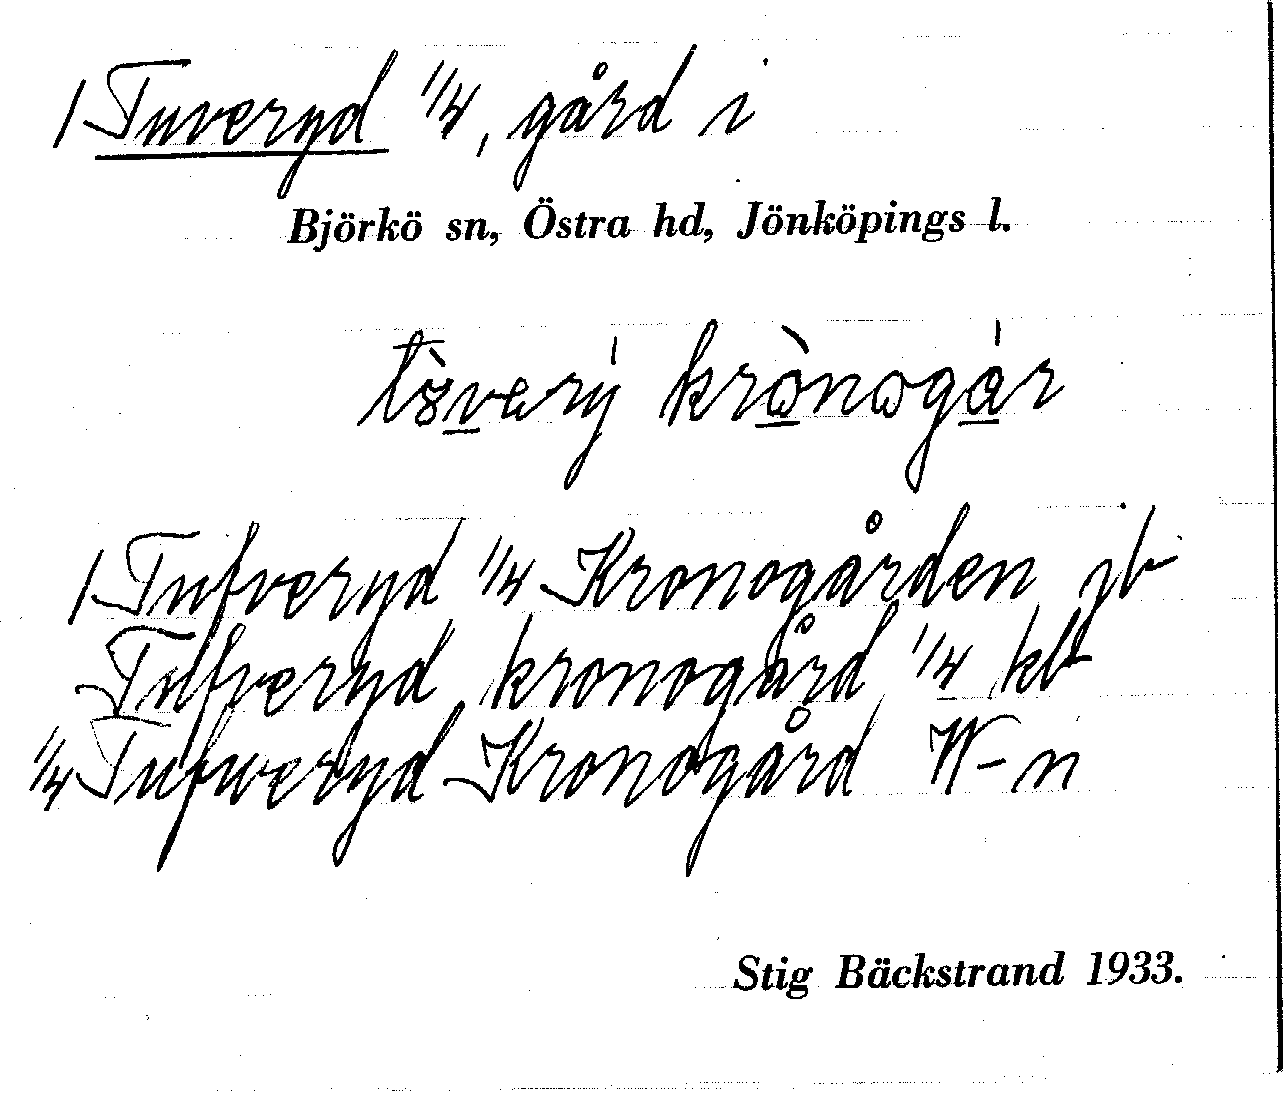 1 Tuveryd 1/4, gård i
Björkö sn, Östra hd, Jönköpings l.
kr
1 Tufveryd 1/4 Kronogården jb
Tufveryd kronogård 1/4 kb
1/4 Tufweryd Kronogård W-n
Stig Bäckstrand 1933.